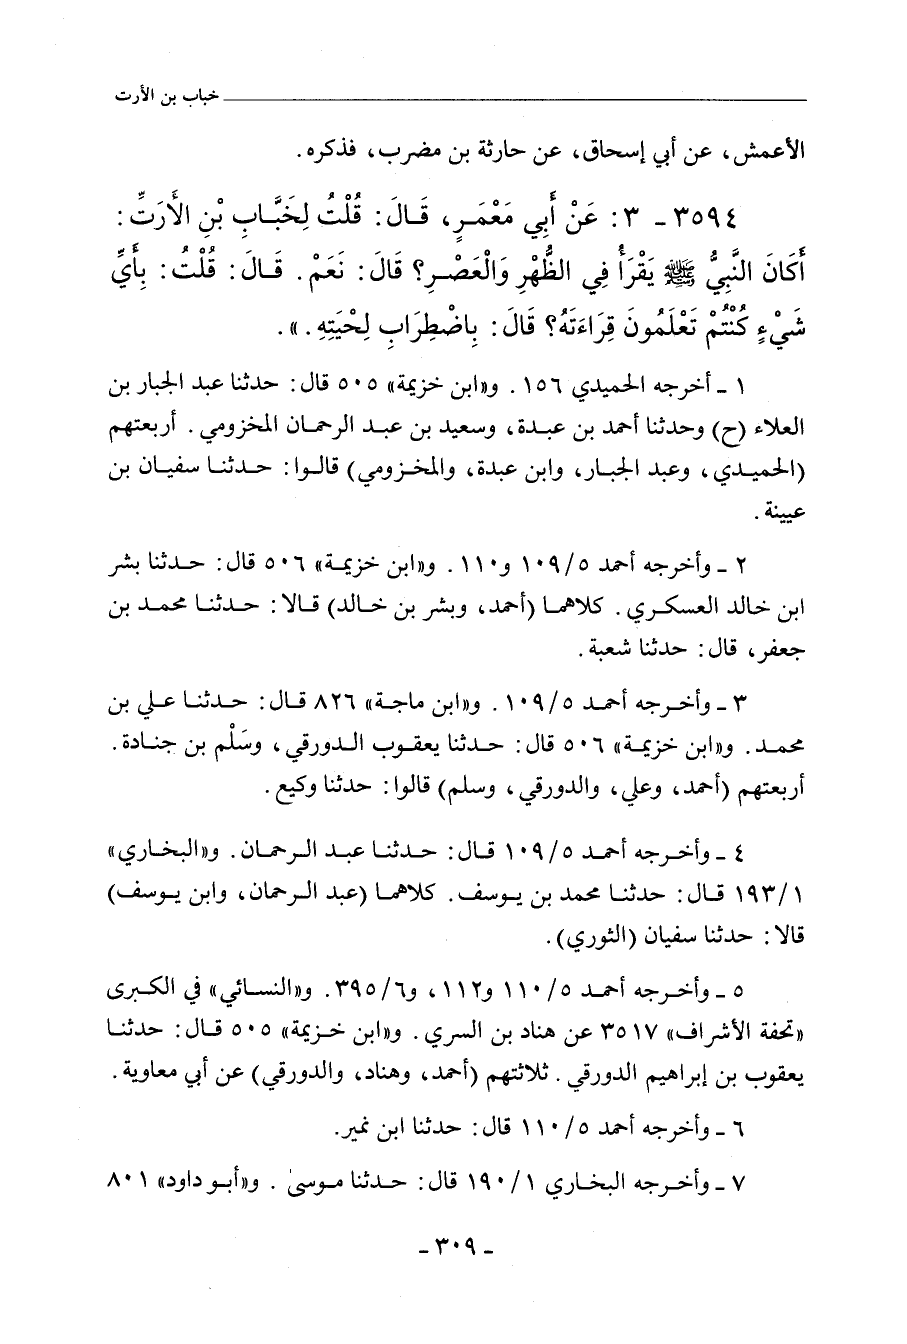 خباب بن الأرت
الأعمش، عن أبي إسحاق، عن حارثة بن مضرب، فذكره.
٣٥٩٤ - ٣: عَنْ أَبِي مَعْمَرٍ، قَالَ: قُلْتُ لِخَبَّابِ بْنِ الأَرَتِّ:
أَكَانَ النَّبِيُّ ﷺ يَقْرَأُ فِي الظُّهْرِ وَالْعَصْرِ؟ قَالَ: نَعَمْ. قَالَ: قُلْتُ: بِأَيِّ
شَيْءٍ كُنْتُمْ تَعْلَمُونَ قِرَاءَتَهُ؟ قَالَ: بِاضْطِرَابِ لِحْيَتِهِ.».
١ - أخرجه الحميدي ١٥٦. و«ابن خزيمة» ٥٠٥ قال: حدثنا عبد الجبار بن
العلاء (ح) وحدثنا أحمد بن عبدة، وسعيد بن عبد الرحمان المخزومي. أربعتهم
(الحميدي، وعبد الجبار، وابن عبدة، والمخزومي) قالوا: حدثنا سفيان بن
عيينة.
٢ - وأخرجه أحمد ١٠٩/٥ و١١٠. و«ابن خزيمة» ٥٠٦ قال: حدثنا بشر
ابن خالد العسكري. كلاهما (أحمد، وبشر بن خالد) قالا: حدثنا محمد بن
جعفر، قال: حدثنا شعبة.
٣ - وأخرجه أحمد ١٠٩/٥. و«ابن ماجة» ٨٢٦ قال: حدثنا علي بن
محمد. و«ابن خزيمة» ٥٠٦ قال: حدثنا يعقوب الدورقي، وسَلْم بن جنادة.
أربعتهم (أحمد، وعلي، والدورقي، وسلم) قالوا: حدثنا وكيع.
٤ - وأخرجه أحمد ١٠٩/٥ قال: حدثنا عبد الرحمان. و«البخاري»
١٩٣/١ قال: حدثنا محمد بن يوسف. كلاهما (عبد الرحمان، وابن يوسف)
قالا: حدثنا سفيان (الثوري).
٥ - وأخرجه أحمد ١١٠/٥ و١١٢، و٣٩٥/٦. و«النسائي» في الكبرى
«تحفة الأشراف» ٣٥١٧ عن هناد بن السري. و«ابن خزيمة» ٥٠٥ قال: حدثنا
يعقوب بن إبراهيم الدورقي. ثلاثتهم (أحمد، وهناد، والدورقي) عن أبي معاوية.
٦ - وأخرجه أحمد ١١٠/٥ قال: حدثنا ابن نمير.
٧ - وأخرجه البخاري ١٩٠/١ قال: حدثنا موسىٰ. و«أبو داود» ٨٠١
- ٣٠٩ -